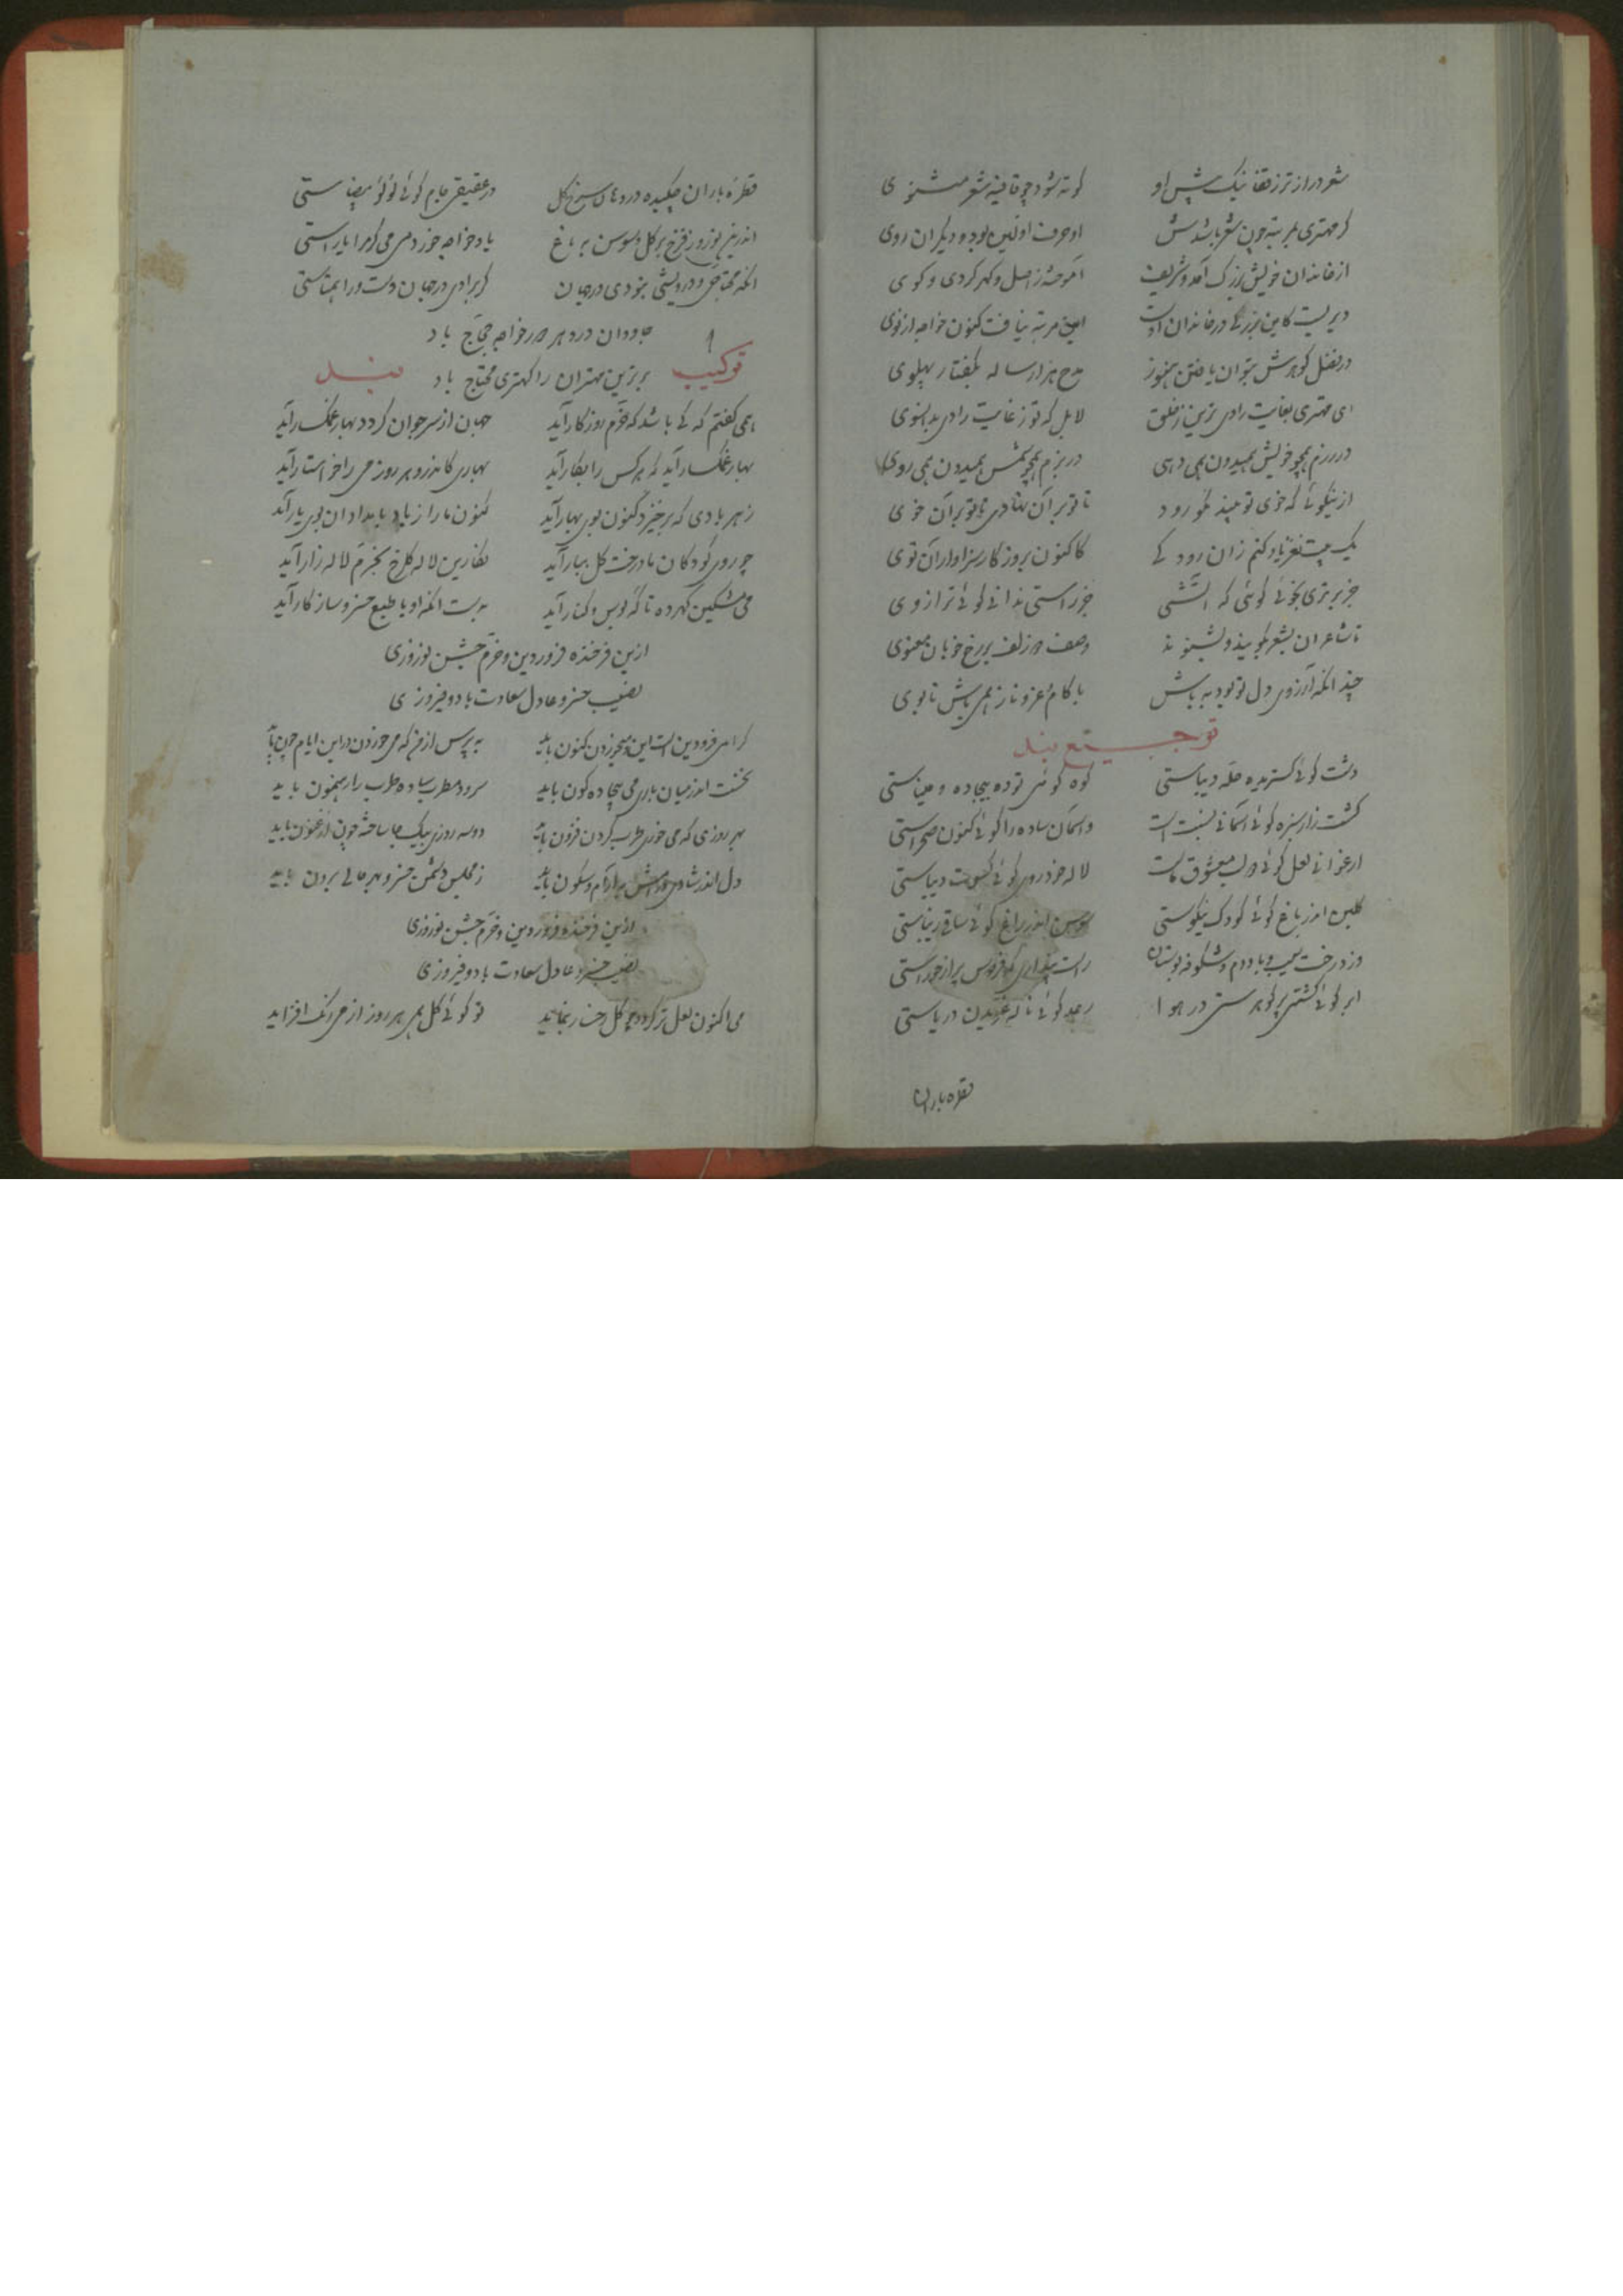 شعر دراز تر ز قفا نیک پیش او کوته شود چو قافیه شعر مثنوی
گر مهتری بمرتبه چون شعر باشدش او حرف اولین بود و دیگران روی
از خاندان خویش بزرگ آمد و شریف آموخته ز اصل و گهر کردی و گوی
دیریست کاین بزرگی در خاندان اوست این مرتبه نیافت کنون خواجه از نوی
در فضل گوهرش بتوان یافتن هنوز مدح هزار ساله بگفتار پهلوی
ای مهتری بغایت رادی ترین ز خلق لابل که تو ز غایت رادی بدانسوی
در رزم همچو خویش همیدون همی دهی در بزم همچو شمس همیدون همی روی
از نیکوئی که خوی تو بیند نکو رود تا تو بر آن نهادی تا تو بر آن خوی
یک بیت نغز یاد کنم زان رودکی کاکنون بروزگار سزاوار آن توی
جز برتری نجوئی گوئی که آتشی جز راستی ندانی گوئی ترازوی
تا شاعران بشعر بگویند و بشنوند وصف دو زلف بر رخ خوبان معنوی
چندانکه آرزوی دل تو بود به باش با کام و عز و ناز همی باش تا بوی
توجیع بند
دشت گوئی گستریده حله دیباستی کوه گوئی توده بیجاده و میناستی
کشت زار سبزه گوئی آسمانی نیست است واسمان ساده را گوئی کنون صحراستی
ارغوان لعل گوئی دو لب معشوق ماست لاله خود روی گوئی کسوت دیباستی
گلبن اندر باغ گوئی کودک نیکوستی سوسن اندر راغ گوئی ساقی زیباستی
وز درخت سیب و بادام و شکوفه بوستان راست پنداری که فردوس پر از حوراستی
ابر گوئی کشتی پر گوهرستی در هوا رعد گوئی ناله غریدن دریاستی
قطره باران
قطره باران چکیده در دهان سرخ گل در عقیقی جام گوئی لؤلؤ بیضاستی
اندرین نوروز فرخ بر گل و سوسن به باغ یاد خواجه خوردمی می گر مرا یاراستی
آنکه محتاجی و درویشی نبودی در جهان گر برادی در جهان دست ورا همتاستی
جاودان در دهر در خواجه حجاج باد
برترین مهتران را کهتری محتاج باد
توکیب بند
همی گفتم که کی باشد که خرم روزگار آید جهان از سر جوان گردد بهار غمگسار آید
بهار غمگسار آید که هر کس را بکار آید بهاری کاندرو هر روز می را خواستار آید
ز هر بادی که برخیزد کنون بوی بهار آید کنون ما را ز باد بامدادان بوی یار آید
چو روی کودکان ما درخت گل ببار آید نگارین لاله گلرخ بخرم لاله زار آید
می مشکین گهر ده تا گه بوس و کنار آید بدست آنکه او با طبع خسرو سازگار آید
ازین فرخنده فروردین و خرم جشن نوروزی
نصیب خسرو عادل سعادت باد و فیروزی
گرامی فرودین است این و میخوردن کنون باید بپرس از من که می خوردن در این ایام چون باید
نخست اندر میان باری می بیجاده گون باید سرود مطرب ساده طرب را رهنمون باید
بهر روزی که می خوری طرب کردن فزون باید دو سه روزی بیک جا ساخته چون ارغنون باید
دل اندر شادی و رامش بآرام و سکون باید ز مجلس دشمن خسرو بهر حالی برون باید
ازین فرخنده فروردین و خرم جشن نوروزی
نصیب خسرو عادل سعادت باد و فیروزی
می اکنون لعل تر گردد چو گل رخسار بنماید تو گوئی گل همی هر روز از می رنگ افزاید